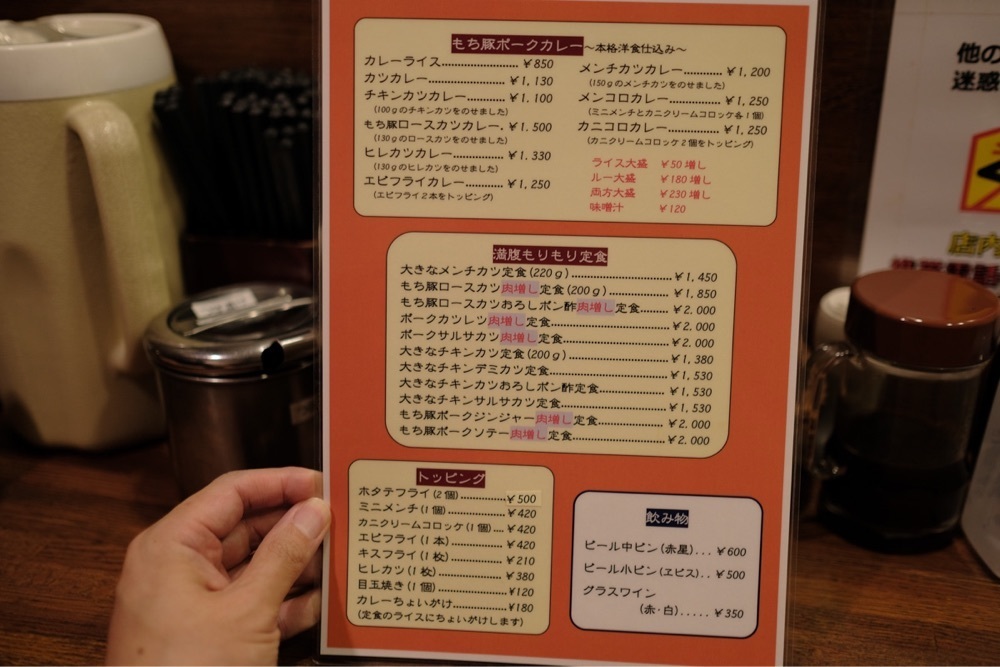 もち豚ポークカレー～本格洋食仕込み～
カレーライス..................¥850
カツカレー..................¥1,130
チキンカツカレー............¥1.100
(100gのチキンカツをのせました)
もち豚ロースカツカレー.¥1.500
(130gのロースカツをのせました)
ヒレカツカレー...............¥1.330
(130gのヒレカツをのせました)
エビフライカレー............¥1,250
(エビフライ2本をトッピング)
メンチカツカレー............¥1,200
(150gのメンチカツをのせました)
メンコロカレー...............¥1,250
(ミニメンチとカニクリームコロッケ各1個)
カニコロカレー...............¥1,250
(カニクリームコロッケ2個をトッピング)
ライス大盛 ¥50増し
ルー大盛 ¥180増し
両方大盛 ¥230増し
味噌汁 ¥120
満腹もりもり定食
大きなメンチカツ定食(220g)........................¥1,450
もち豚ロースカツ肉増し定食(200g)...............¥1,850
もち豚ロースカツおろしポン酢肉増し定食........¥2.000
ポークカツレツ肉増し定食..............................¥2.000
ポークサルサカツ肉増し定食...........................¥2.000
大きなチキンカツ定食(200g)........................¥1,380
大きなチキンデミカツ定食..............................¥1,530
大きなチキンカツおろしポン酢定食..................¥1,530
大きなチキンサルサカツ定食...........................¥1,530
もち豚ポークジンジャー肉増し定食..................¥2.000
もち豚ポークソテー肉増し定食........................¥2.000
トッピング
ホタテフライ(2個)............¥500
ミニメンチ(1個)...............¥420
カニクリームコロッケ(1個)....¥420
エビフライ(1本)...............¥420
キスフライ(1枚)...............¥210
ヒレカツ(1枚)..................¥380
目玉焼き(1個)..................¥120
カレーちょいがけ...............¥180
(定食のライスにちょいがけします)
飲み物
ビール中ビン(赤星)...¥600
ビール小ビン(ヱビス)..¥500
グラスワイン
(赤・白).....¥350
他の
迷惑
店内